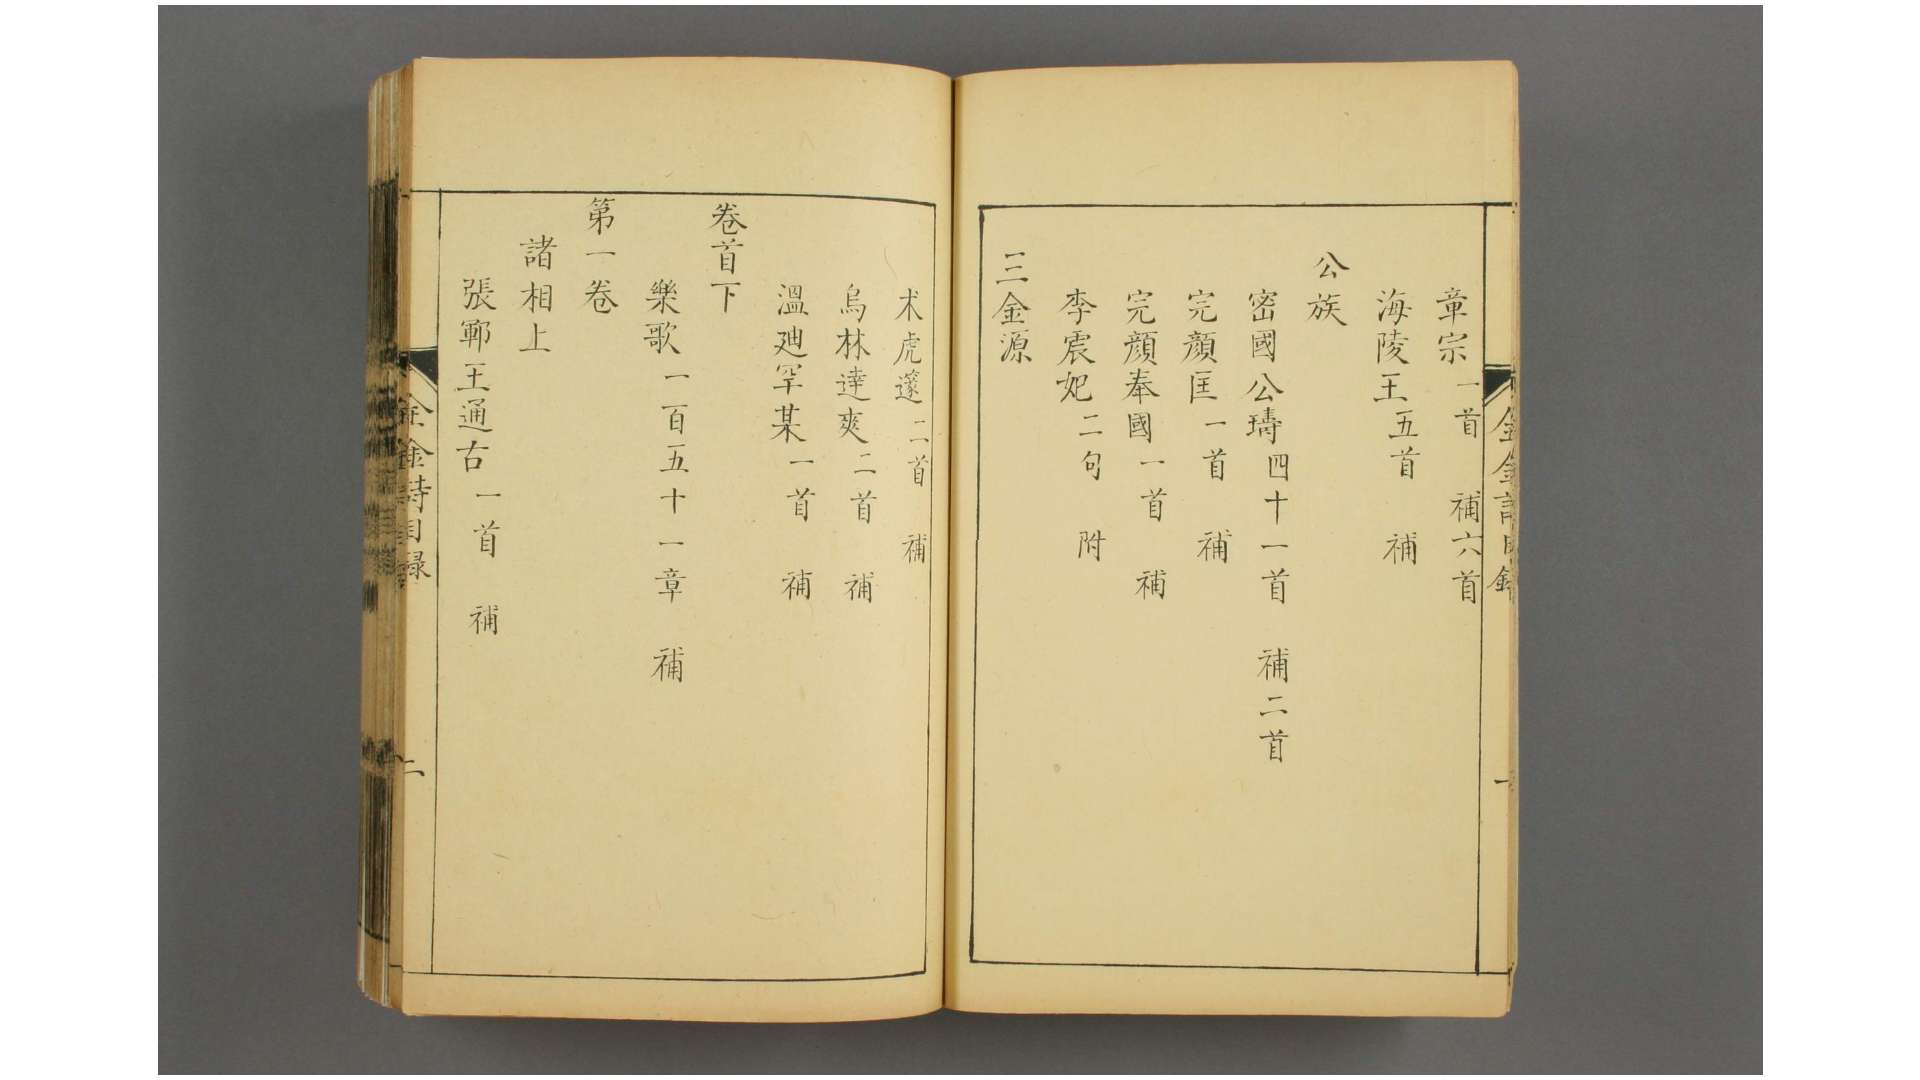 章宗一首 補六首
海陵王五首 補
公族
密國公璹四十一首 補二首
完顏匡一首 補
完顏奉國一首 補
李宸妃二句 附
三金源
术虎邃二首 補
烏林達爽二首 補
溫迪罕某一首 補
卷首下
樂歌一百五十一章 補
第一卷
諸相上
張鄆王通古一首 補
全金詩目錄
二